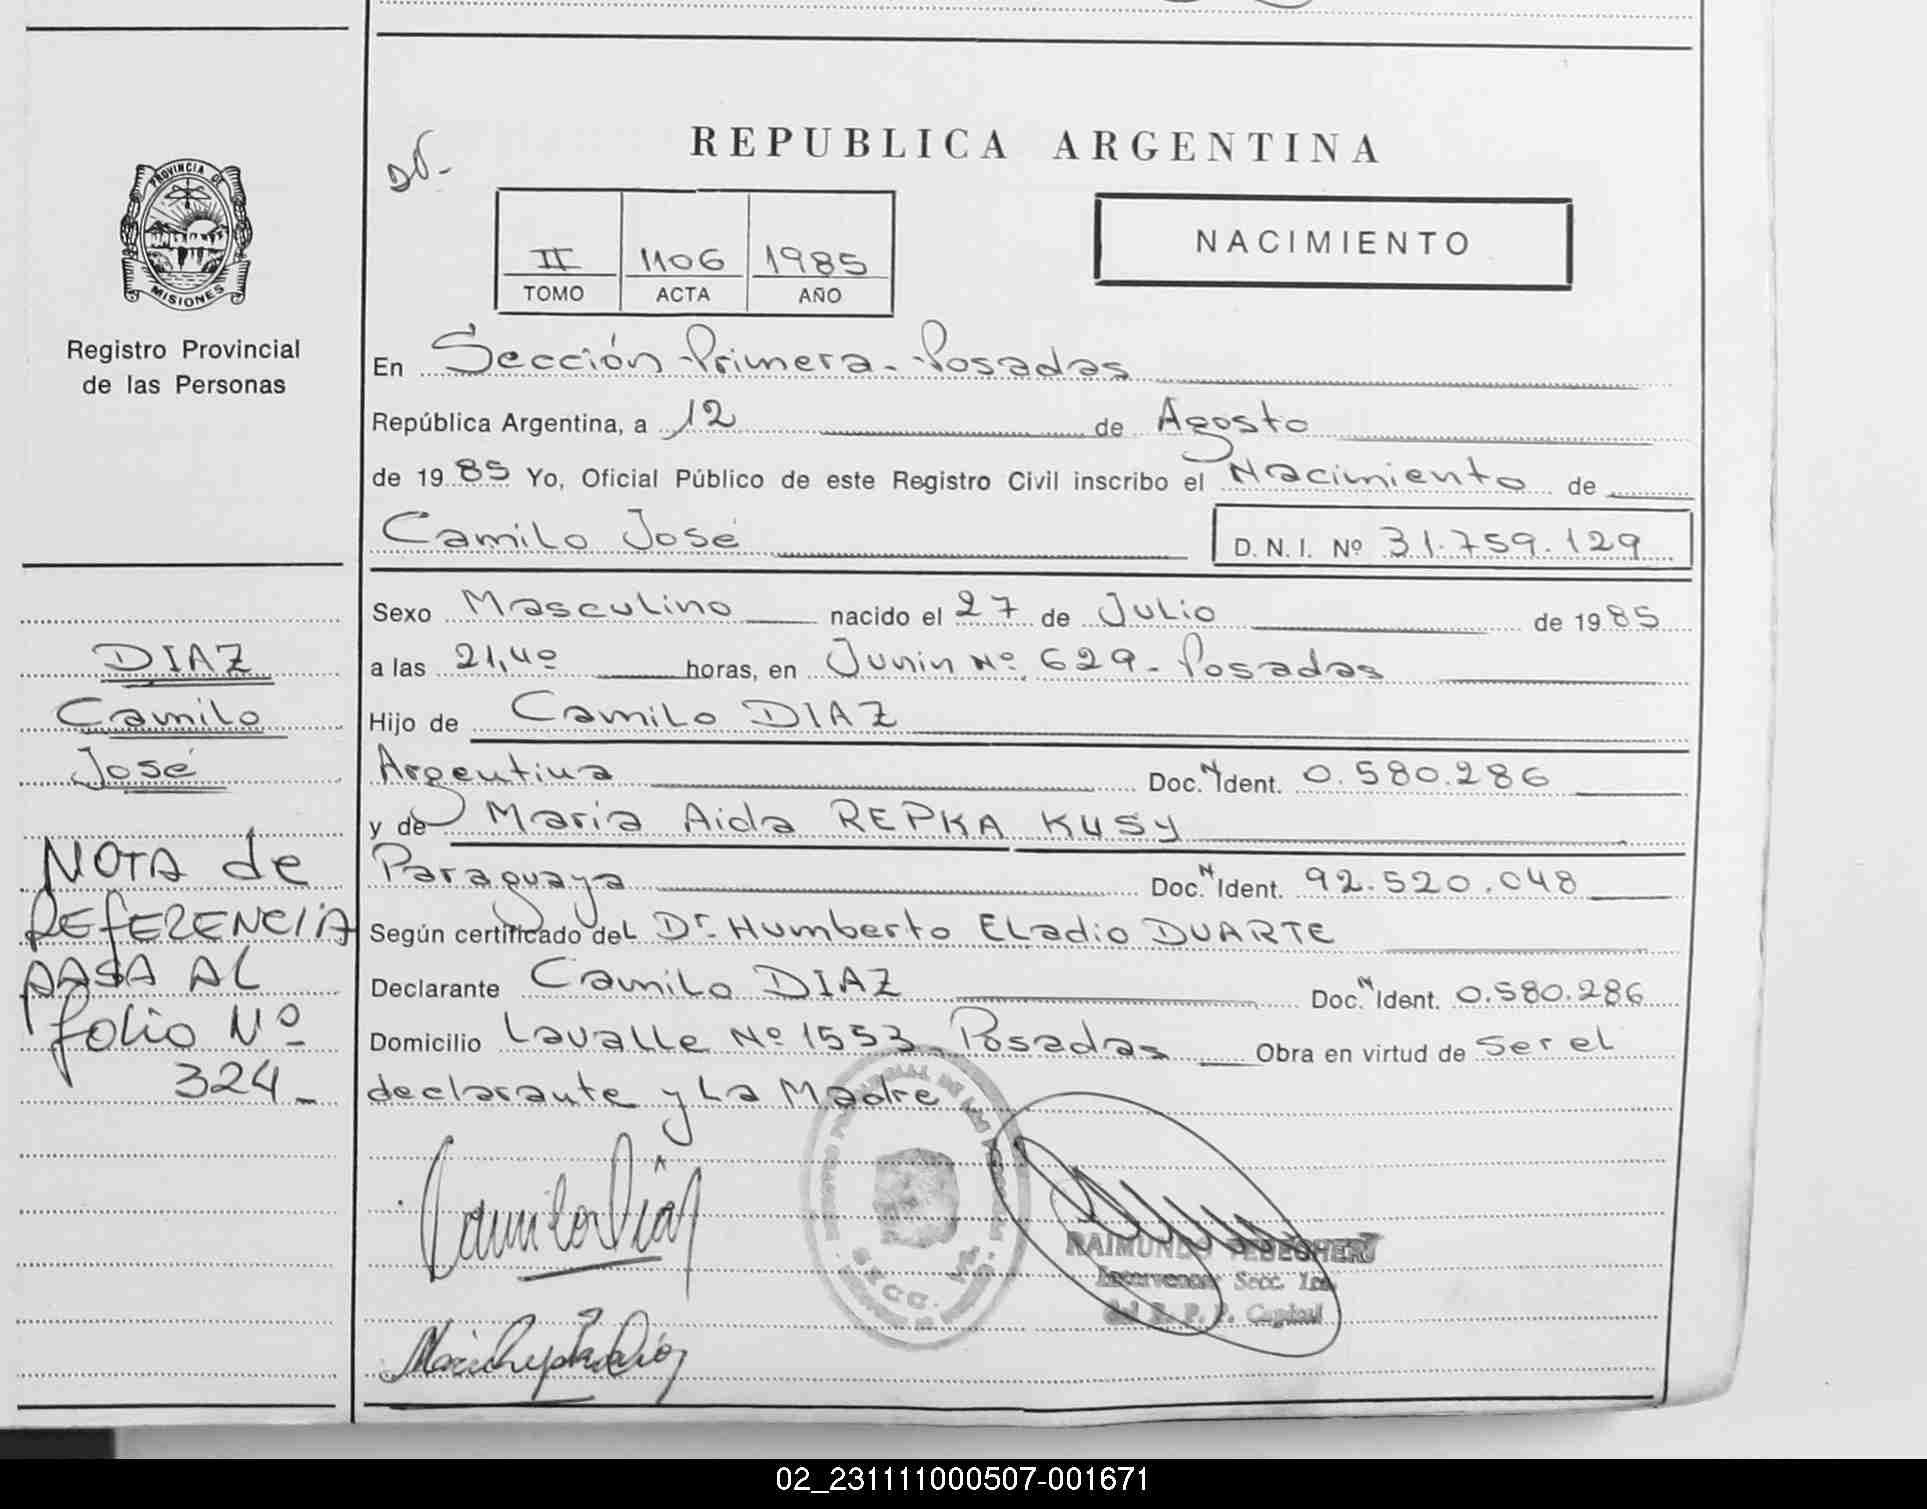 REPUBLICA ARGENTINA
PROVINCIA DE
MISIONES
Registro Provincial
de las Personas
II 1106 1985
TOMO ACTA AÑO
NACIMIENTO
En Sección Primera - Posadas
República Argentina, a 12 de Agosto
de 1985 Yo, Oficial Público de este Registro Civil inscribo el Nacimiento de
Camilo José D.N.I. Nº 31.759.129
Sexo Masculino nacido el 27 de Julio de 1985
a las 21,40 horas, en Junin Nº 629 - Posadas
Hijo de Camilo DIAZ
Argentina Doc. N Ident. 0.580.286
y de Maria Aida REPKA KUSY
Paraguaya Doc. N Ident. 92.520.048
Según certificado del Dr. Humberto Eladio DUARTE
Declarante Camilo DIAZ Doc. N Ident. 0.580.286
Domicilio Lavalle Nº 1553 Posadas Obra en virtud de Ser el
declarante y La Madre
DIAZ
Camilo
José
NOTA de
REFERENCIA
PASA AL
folio Nº
324-
Camilo Diaz
RAIMUNDO
Interventor Secc. 1ra
del R. P. P. Capital
02_231111000507-001671